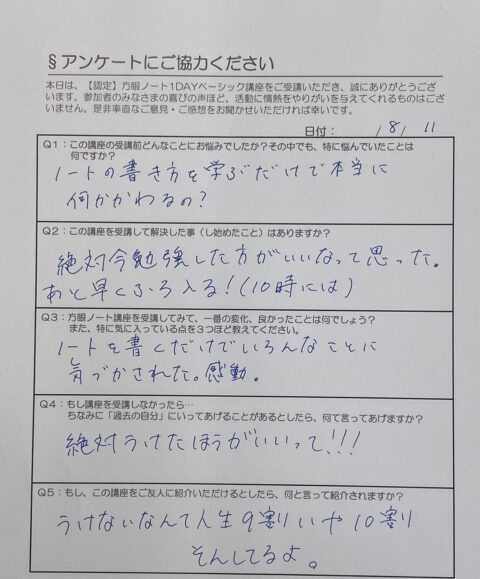 §アンケートにご協力ください
本日は、【認定】方眼ノート1DAYベーシック講座をご受講いただき、誠にありがとうござ
います。参加者のみなさまの喜びの声ほど、活動に情熱をやりがいを与えてくれるものはござ
いません。是非率直なご意見・ご感想をお聞かせいただければ幸いです。
日付： /8/ 11
Q1：この講座の受講前どんなことにお悩みでしたか？その中でも、特に悩んでいたことは
何ですか？
ノートの書き方を学ぶだけで本当に
何かかわるの？
Q2：この講座を受講して解決した事（し始めたこと）はありますか？
絶対今勉強した方がいいなって思った。
あと早くふろ入る！(10時には)
Q3：方眼ノート講座を受講してみて、一番の変化、良かったことは何でしょう？
また、特に気に入っている点を3つほど教えてください。
ノートを書くだけでいろんなことに
気づかされた。感動。
Q4：もし講座を受講しなかったら…
ちなみに「過去の自分」にいってあげることがあるとしたら、何て言ってあげますか？
絶対うけたほうがいいって!!!
Q5：もし、この講座をご友人に紹介いただけるとしたら、何と言って紹介されますか？
うけないなんて人生9割りいや10割り
そんしてるよ。